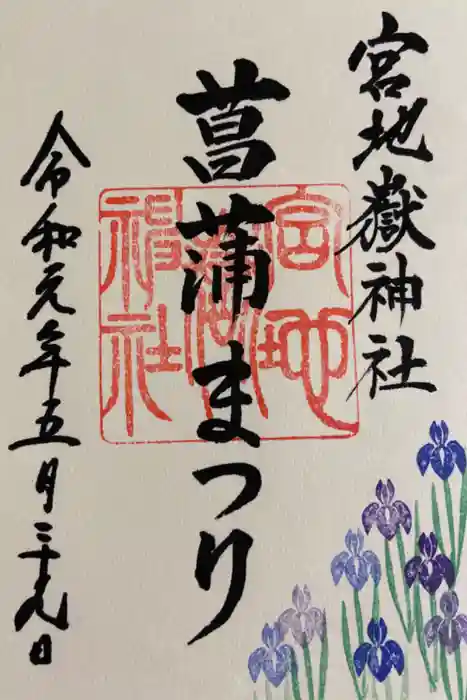 宮地嶽神社
菖蒲まつり
令和元年五月二十九日
宮地
嶽
神社